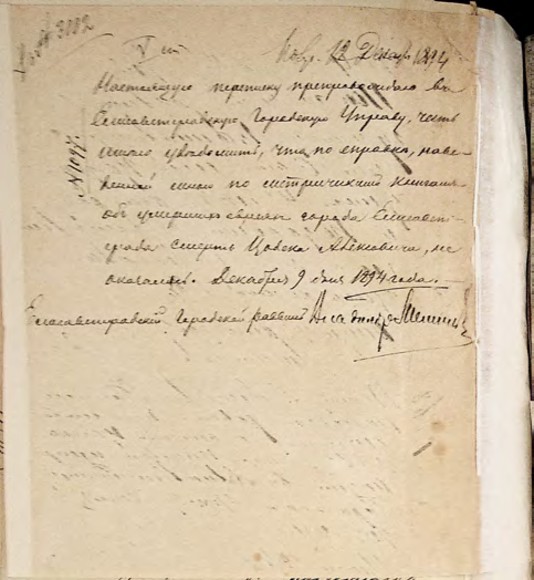 3002
V
12 Декабр 1894
Настоящую переписку препровождая въ
Елисаветградскую Городскую Управу, честь
имѣю увѣдомить, что по справкѣ, наве-
денной мною по метрическимъ книгамъ
объ умершихъ евреяхъ города Елисавет-
града смерть, не
оказалось. Декабря 9 дня 1894 года.
Елисаветградскій Городской раввинъ
N 1097.